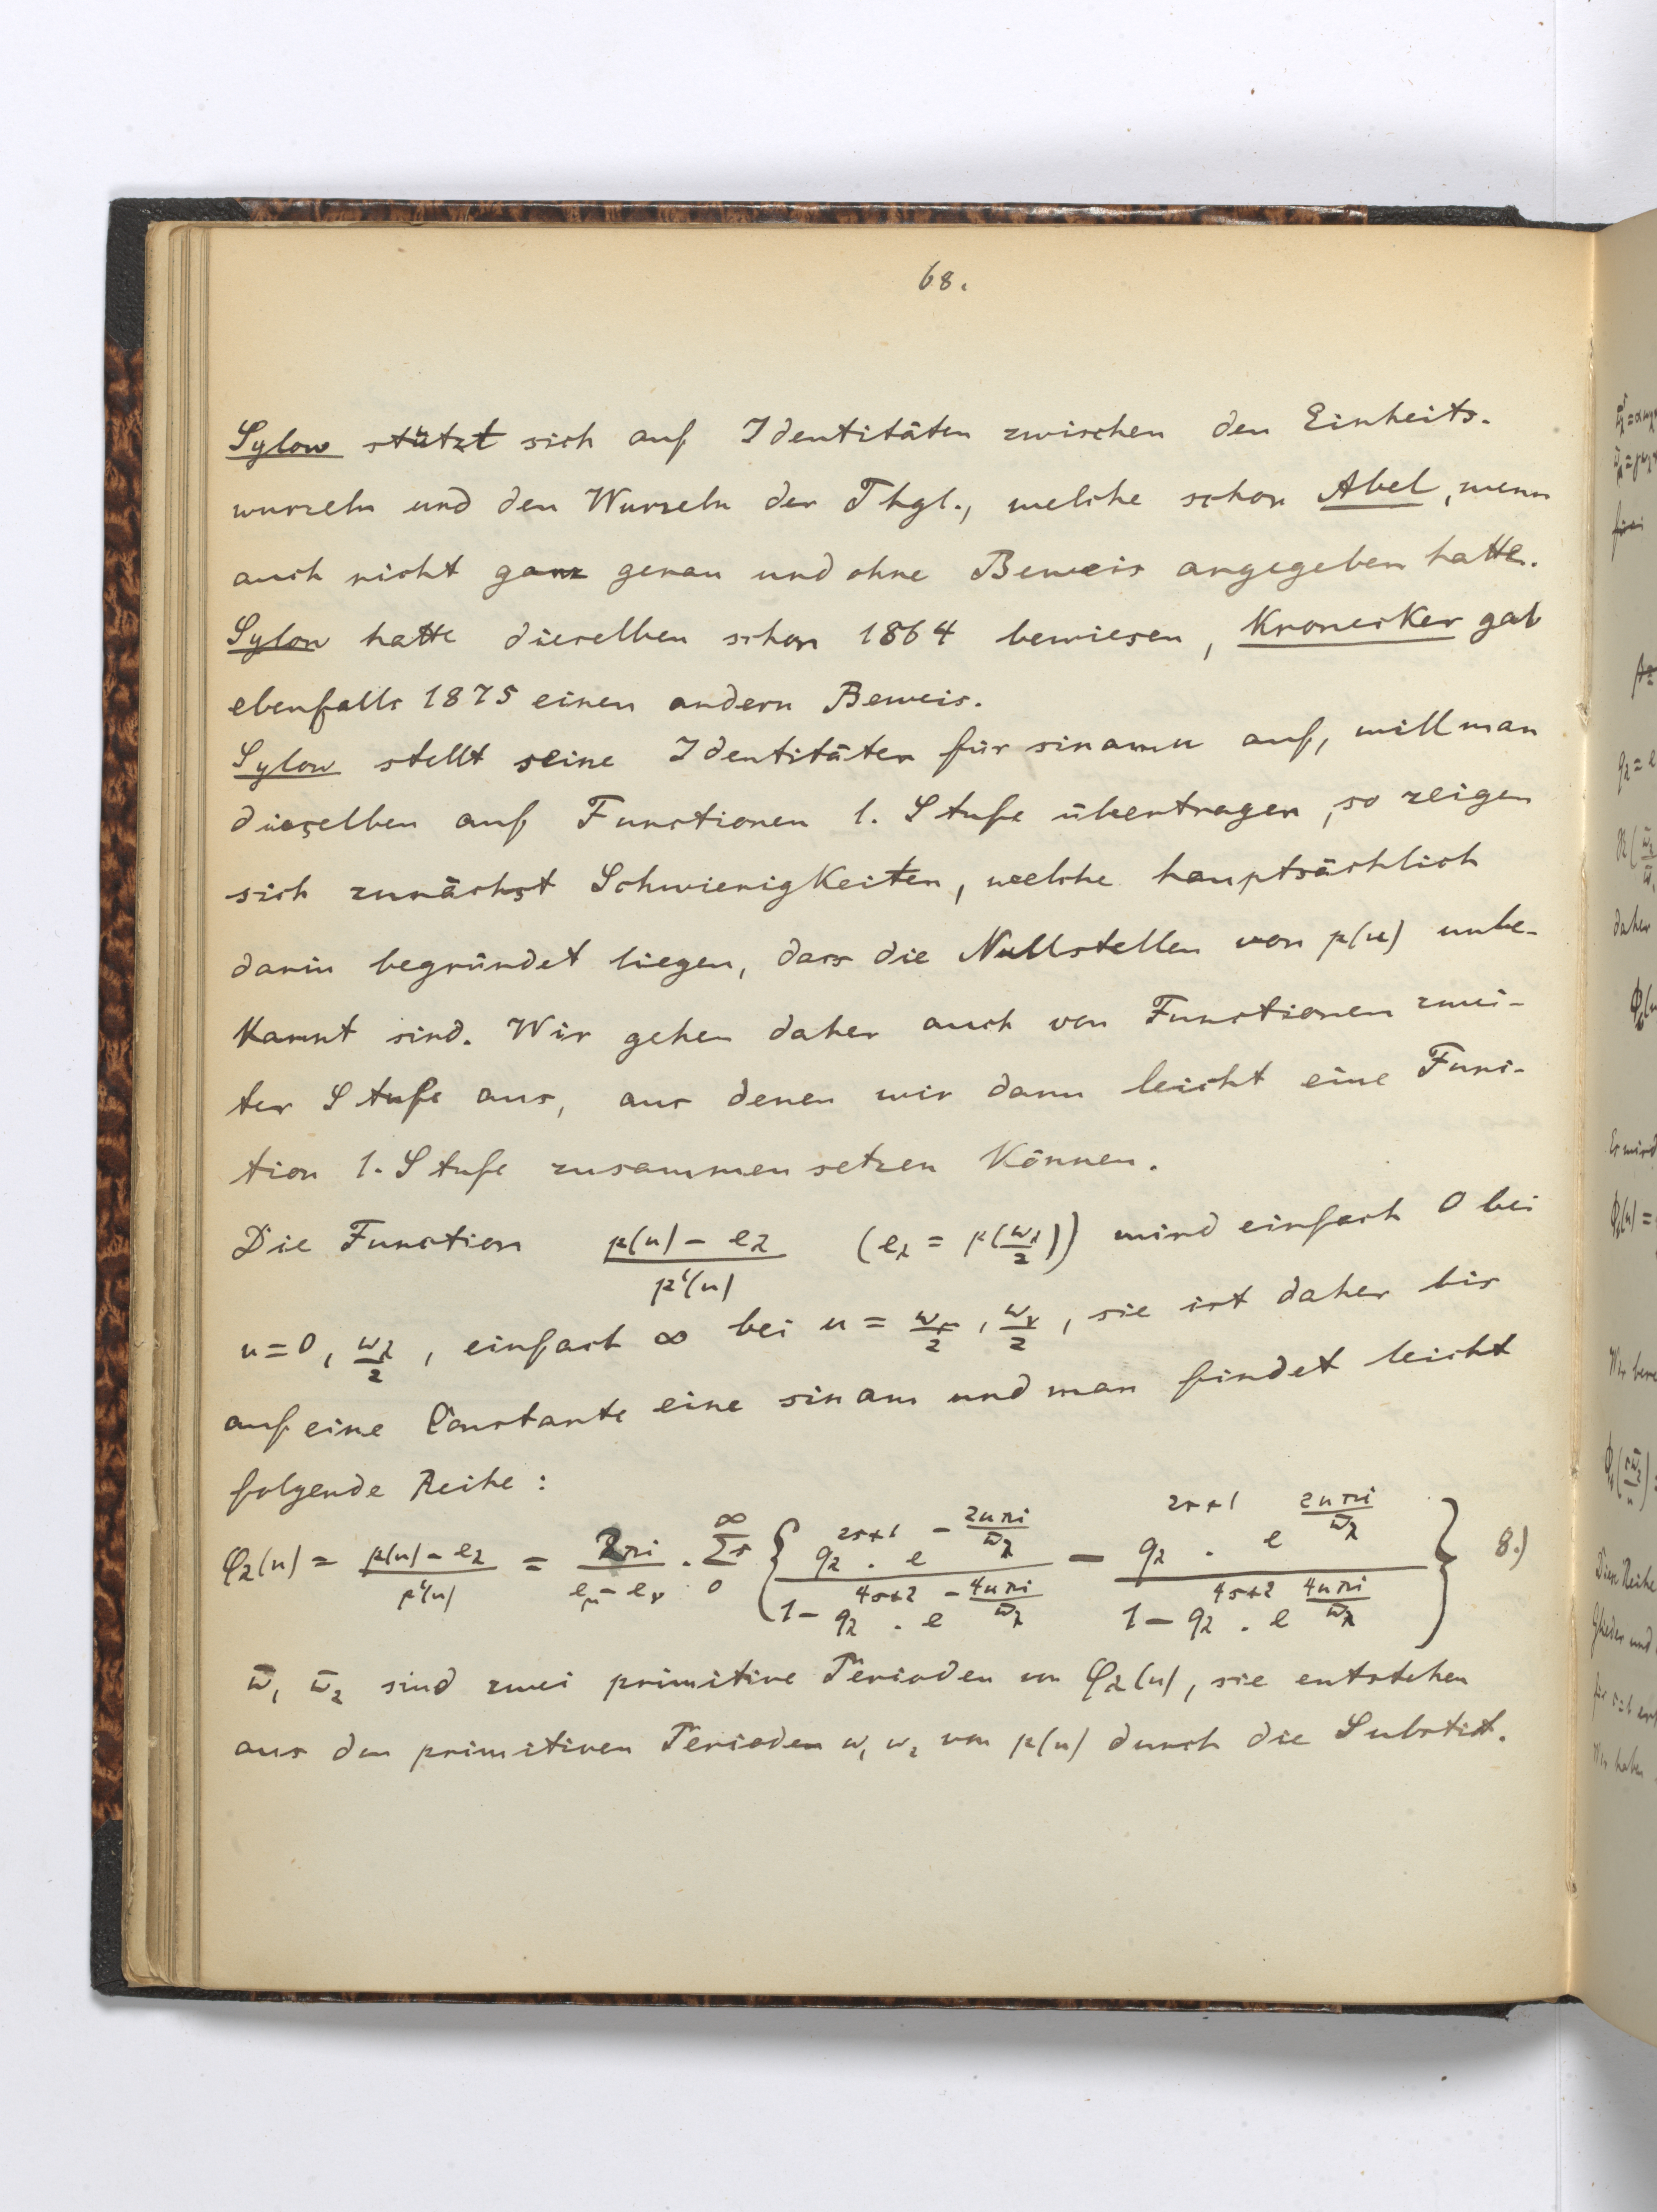 68.
Sylow stützt sich auf Identitäten zwischen den Einheits-
wurzeln und den Wurzeln der Thgl., welche schon Abel, wenn
auch nicht ganz genau und ohne Beweis angegeben hatte.
Sylow hatte dieselben schon 1864 bewiesen, Kronecker gab
ebenfalls 1875 einen andern Beweis.
Sylow stellt seine Identitäten für sinamu auf, will man
dieselben auf Functionen 1. Stufe übertragen, so zeigen
sich zunächst Schwierigkeiten, welche hauptsächlich
darin begründet liegen, dass die Nullstellen von p(u) unbe-
kannt sind. Wir gehen daher auch von Functionen zwei-
ter Stufe aus, aus denen wir dann leicht eine Func-
tion 1. Stufe zusammen setzen können.
Die Function (p(u) - e_λ)/(p'(u)) (e_λ = p(ω_λ/2)) wird einfach 0 bei
u = 0, ω_λ/2, einfach ∞ bei u = ω_μ/2, ω_ν/2, sie ist daher bis
auf eine Constante eine sin am und man findet leicht
folgende Reihe:
φ_λ(u) = (p(u) - e_λ)/(p'(u)) = 2πi/(e_μ - e_ν) · Σ_r 0 ∞ { (q_λ^{2r+1} · e^{-2uπi/ω̄_λ})/(1 - q_λ^{4r+2} · e^{-4uπi/ω̄_λ}) - (q_λ^{2r+1} · e^{2uπi/ω̄_λ})/(1 - q_λ^{4r+2} · e^{4uπi/ω̄_λ}) } 8.)
ω̄₁ ω̄₂ sind zwei primitive Perioden von φ_λ(u), sie entstehen
aus den primitiven Perioden ω₁ ω₂ von p(u) durch die Substit.